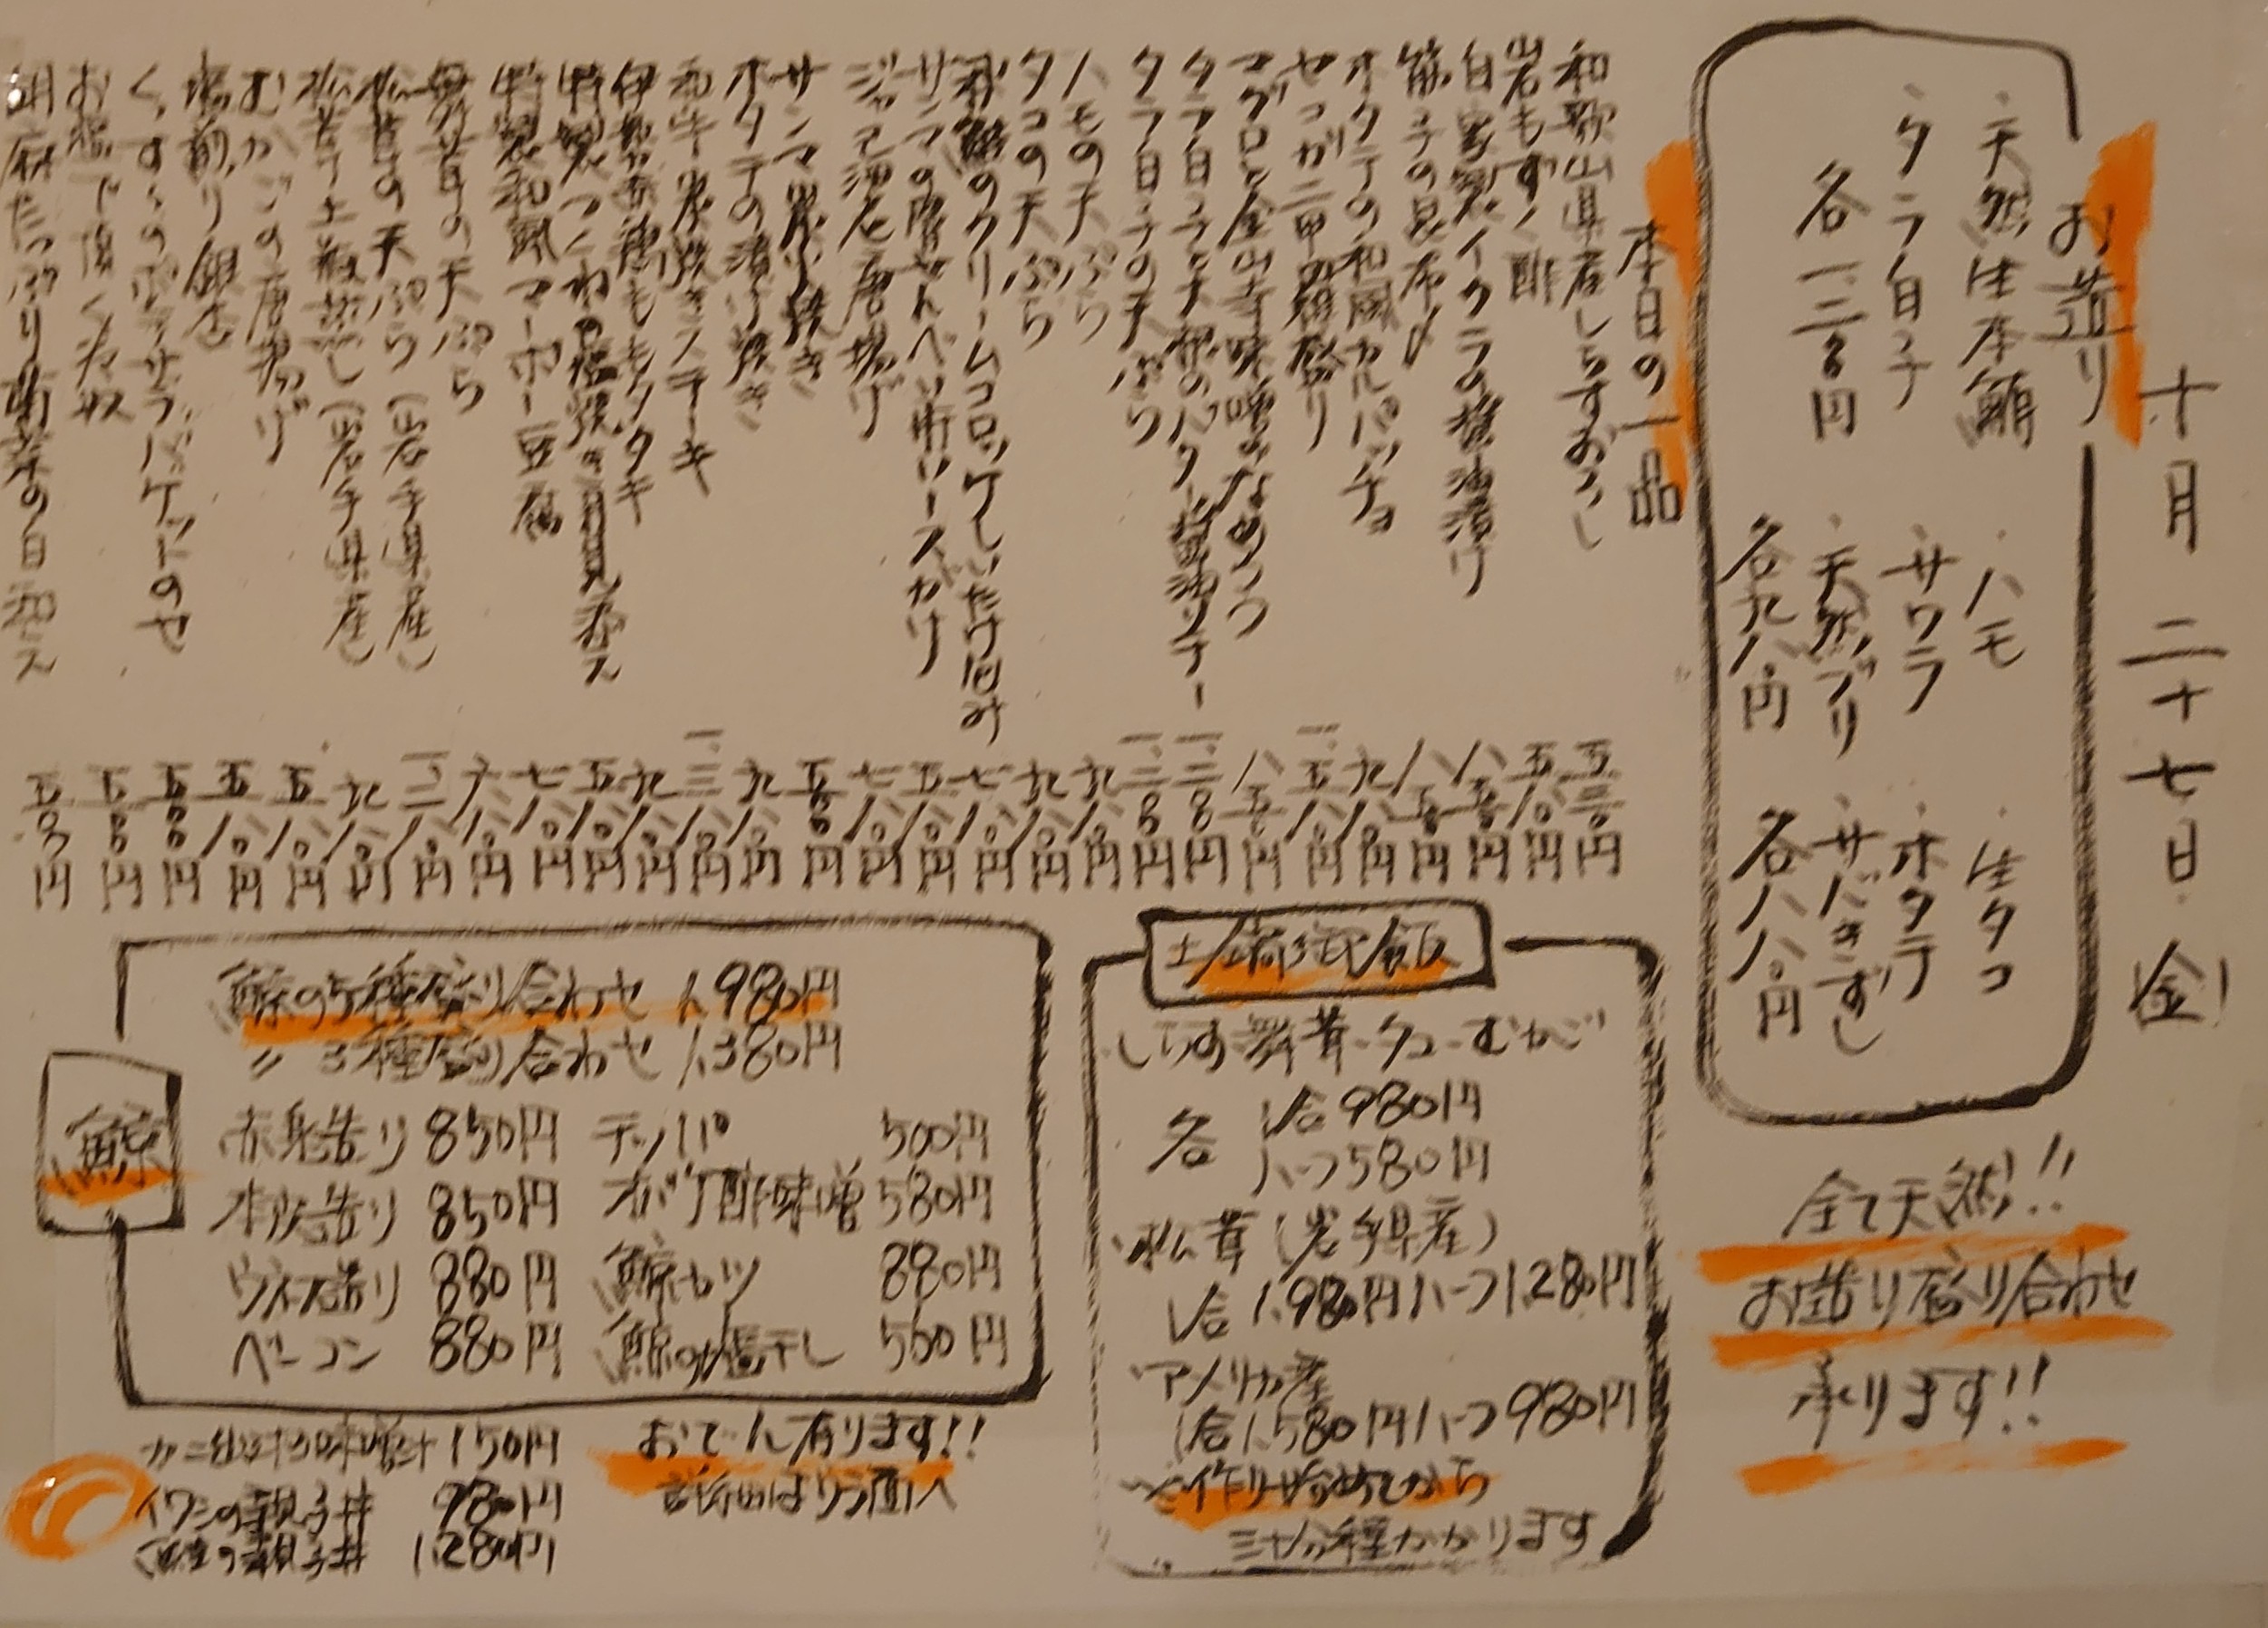 十月二十七日(金)
お造り
・天然生本鮪
・タラ白子
各一、二八〇円
・ハモ
・サワラ
・天然ブリ
各九八〇円
・生タコ
・ホタテ
・サバきずし
各八八〇円
全て天然!!
お造り盛り合わせ
承ります!!
本日の一品
和歌山県産しらすおろし 五三〇円
岩もずく酢 五八〇円
自家製イクラの醤油漬け 八五〇円
筋子の昆布〆 八五〇円
ホタテの和風カルパッチョ 九八〇円
セコガニ甲羅盛り 一、五八〇円
マグロと金山寺味噌のなめろう 八五〇円
タラ白子と大根のバター醤油ソテー 一、三八〇円
タラ白子の天ぷら 一、三八〇円
ハモの天ぷら 九八〇円
タコの天ぷら 九八〇円
秋鮭のクリームコロッケしいたけ包み 七八〇円
サンマの唐せんべい南バンソースがけ
ジャコ沼老唐揚げ
サンマ炭火焼き 五八〇円
ホタテの漬け焼き 九八〇円
和牛炭焼きステーキ 一、三八〇円
伊勢赤鶏ももタタキ 九八〇円
特製つくねの塩焼き 月見添え 五八〇円
特製和風マーボー豆腐 七八〇円
舞茸の天ぷら 六八〇円
松茸の天ぷら(岩手県産)
松茸土瓶蒸し(岩手県産) 九八〇円
むかごの唐揚げ 五八〇円
塩煎り銀杏 五八〇円
くするのポテサラバケットのせ 五〇〇円
五〇〇円
胡麻たっぷり 五〇〇円
土鍋御飯
・しらす・舞茸・タコ・むかご
各 1合980円
ハーフ580円
・松茸(岩手県産)
1合1,980円ハーフ1,280円
アメリカ産
1合1,580円ハーフ980円
※作り始めてから
三十分程かかります
鯨
鯨の5種盛り合わせ 1,980円
〃 3種盛り合わせ 1,380円
赤身造り 850円
本皮造り 850円
ウネス造り 880円
ベーコン 880円
テッパ 500円
オバケ酢味噌 580円
鯨カツ 880円
鯨の塩干し 500円
カニ出汁の味噌汁 150円
イワシの親子丼 980円
鮭の親子丼 1,280円
おでん有ります!!
詳細はウラ面へ